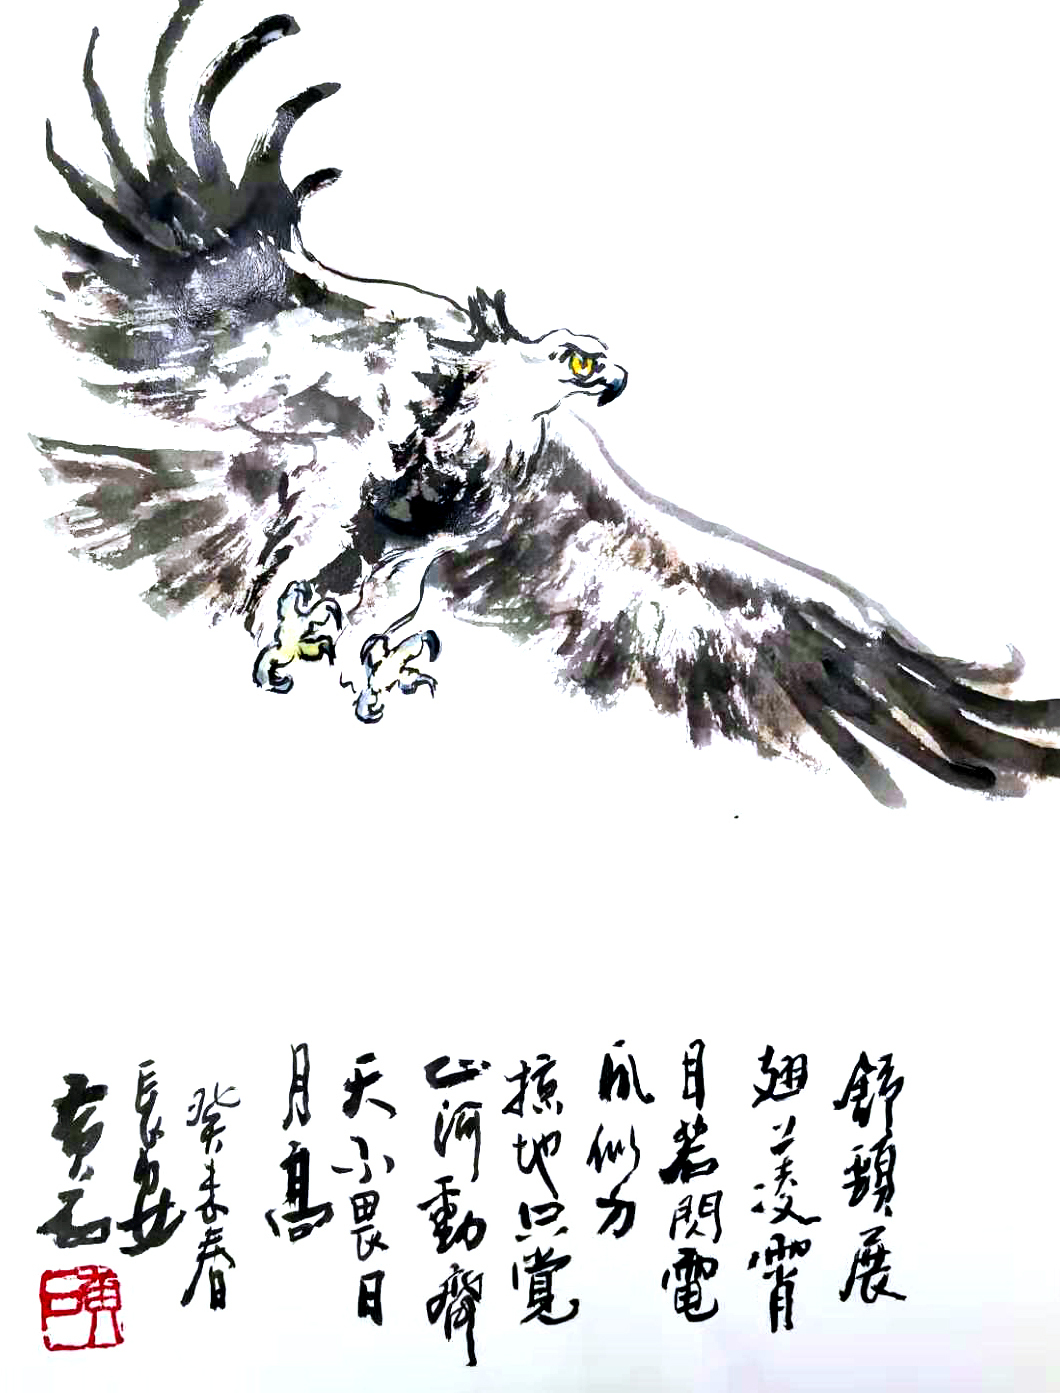 舒頸展
翅上凌霄
目若閃電
爪似刀
掠地只覺
山河動齊
天不畏日
月高
癸未春
長安
黄石